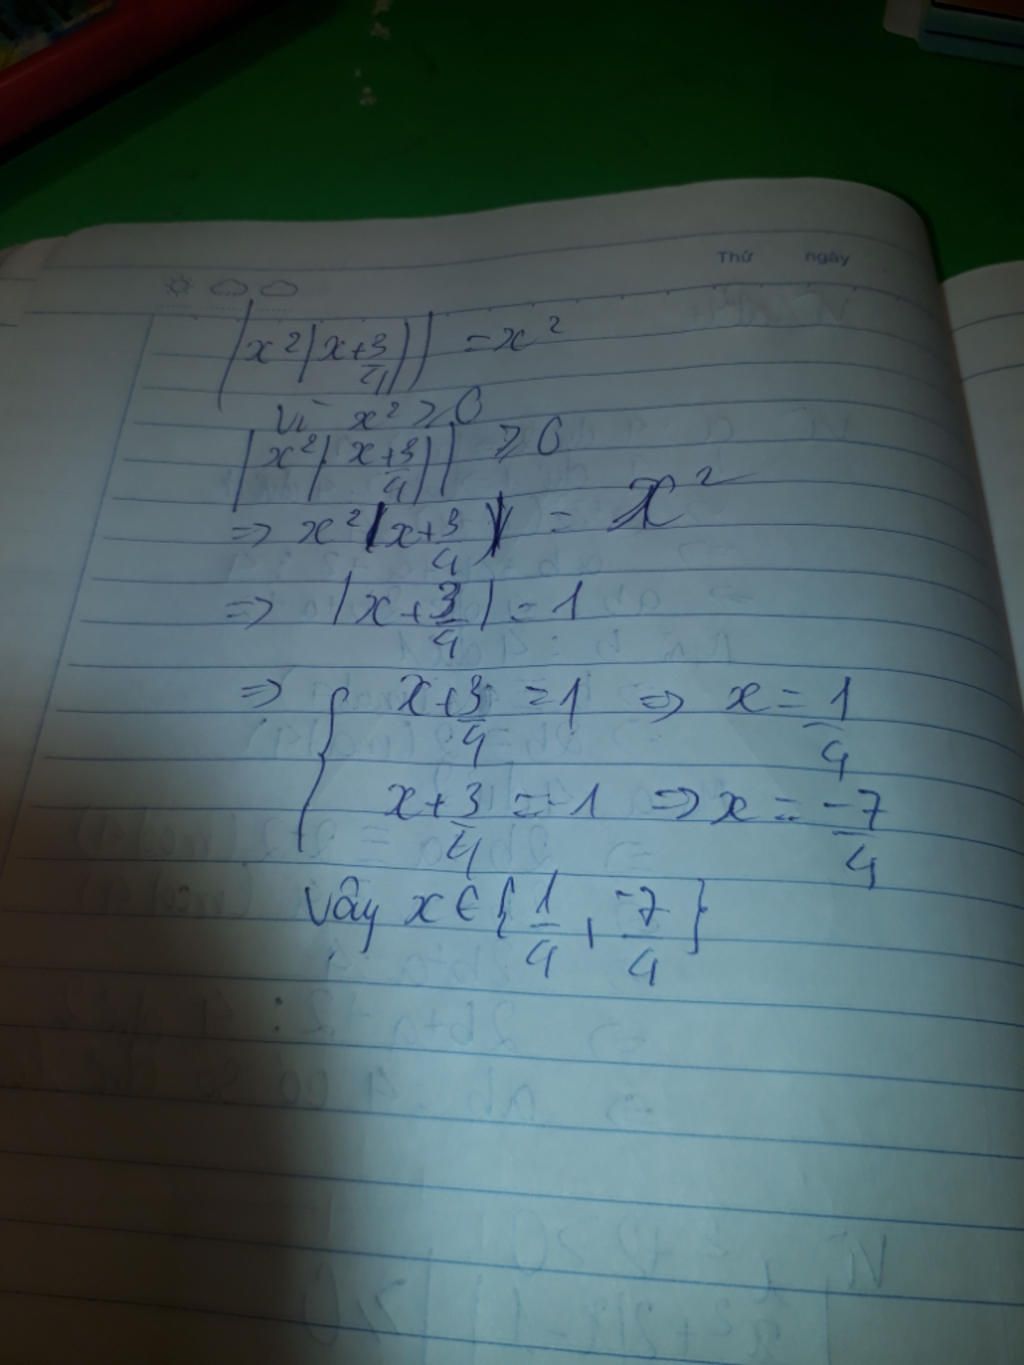 Thứ ngày
|x²|x+3/4|| = x²
Vì x² ⩾ 0
|x²|x+3/4|| ⩾ 0
=> x²|x+3/4| = x²
=> |x+3/4| = 1
=> { x+3/4 = 1 => x = 1/4
x+3/4 = -1 => x = -7/4
Vậy x ∈ {1/4, -7/4}